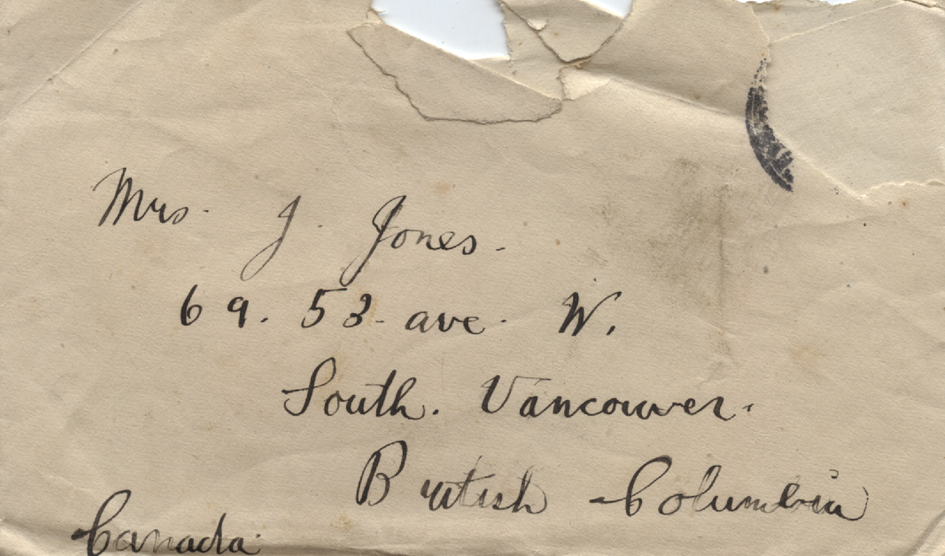 Mrs. J. Jones.
69. 53 ave. W.
South. Vancouver.
British Columbia
Canada.